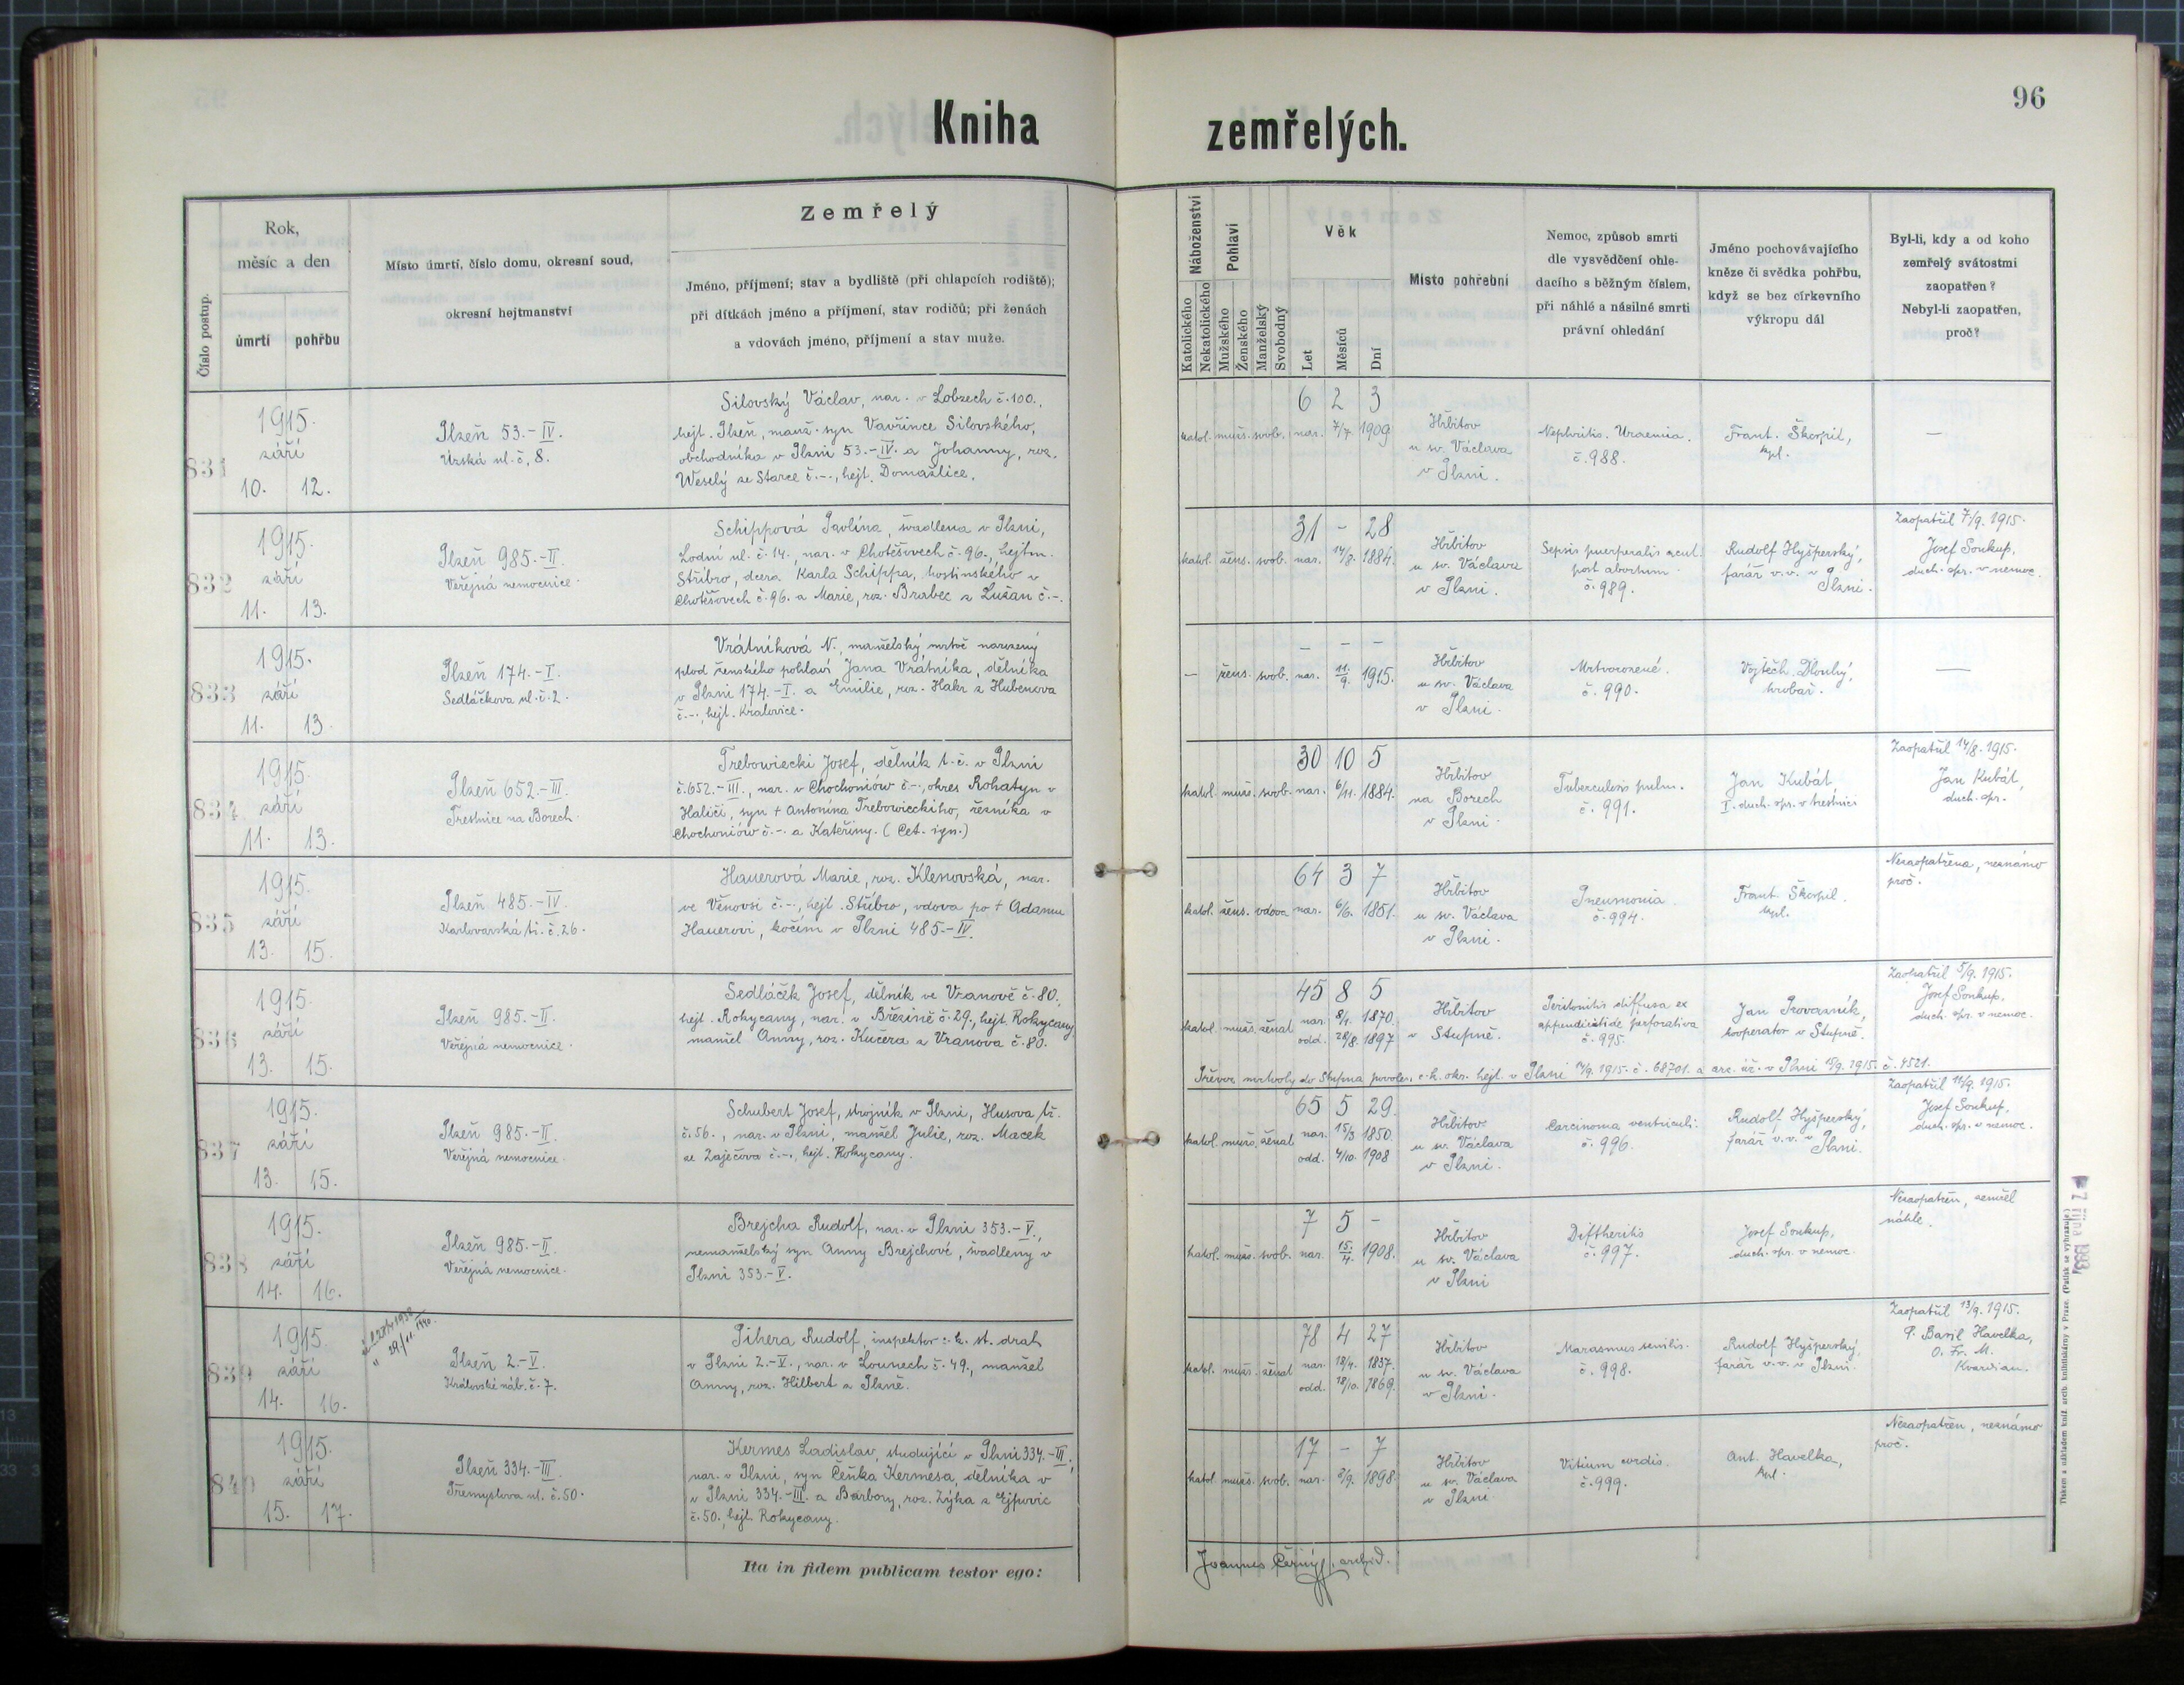 96
Kniha zemřelých.
Číslo postup.
Rok,
měsíc a den
úmrtí
pohřbu
Místo úmrtí, číslo domu, okresní soud,
okresní hejtmanství
Zemřelý
Jméno, příjmení; stav a bydliště (při chlapcích rodiště);
při dítkách jméno a příjmení, stav rodičů; při ženách
a vdovách jméno, příjmení a stav muže.
Náboženství
Katolického
Nekatolického
Pohlaví
Mužského
Ženského
Manželský
Svobodný
Věk
Let
Měsíců
Dní
Místo pohřební
Nemoc, způsob smrti
dle vysvědčení ohle-
dacího s běžným číslem,
při náhlé a násilné smrti
právní ohledání
Jméno pochovávajícího
kněze či svědka pohřbu,
když se bez církevního
výkropu dál
Byl-li, kdy a od koho
zemřelý svátostmi
zaopatřen?
Nebyl-li zaopatřen,
proč?
831
1915.
září
10. 12.
Plzeň 53.-IV.
Úzská ul. č. 8.
Silovský Václav, nar. v Lobzech č. 100.,
hejt. Plzeň, manž. syn Vavřince Silovského,
obchodníka v Plzni 53.-IV. a Johanny, roz.
Weselý ze Starce č.-., hejt. Domažlice.
6 2 3
katol. muž. svob. nar. 7/7 1909
Hřbitov
u sv. Václava
v Plzni.
Nephritis. Uraemia.
č. 988.
Frant. Škorpil,
kpl.
—
832
1915.
září
11. 13.
Plzeň 985.-II.
Veřejná nemocnice.
Schippová Pavlína, švadlena v Plzni,
Lodní ul. č. 14., nar. v Chotěšovech č. 96., hejtm.
Stříbro, dcera Karla Schippa, hostinského v
Chotěšovech č. 96. a Marie, roz. Brabec z Lužan č.-.
31 - 28
katol. žens. svob. nar. 14/8. 1884.
Hřbitov
u sv. Václava
v Plzni.
Sepsis puerperalis acut.
post abortum.
č. 989.
Rudolf Hyšperský,
farář v.v. v
Plzni.
Zaopatřil 7/9. 1915.
Josef Soukup,
duch. spr. v nemoc.
833
1915.
září
11. 13.
Plzeň 174.-I.
Sedláčkova ul. č. 2.
Vrátníková N., manželský mrtvě narozený
plod ženského pohlaví Jana Vrátníka, dělníka
v Plzni 174.-I. a Emilie, roz. Hakr z Hubenova
č.-., hejt. Kralovice.
- - -
— žens. svob. nar. 11./9. 1915.
Hřbitov
u sv. Václava
v Plzni.
Mrtvorozené.
č. 990.
Vojtěch Dlouhý,
hrobař.
—
834
1915.
září
11. 13.
Plzeň 652.-III.
Trestnice na Borech.
Trebowiecki Josef, dělník t.č. v Plzni
č. 652.-III., nar. v Chochoniów č.-., okres Rohatyn v
Haliči, syn + Antonína Trebowieckiho, řezníka v
Chochoniów č.-. a Kateřiny. (Cet. ign.)
30 10 5
katol. muž. svob. nar. 6/11. 1884.
Hřbitov
na Borech
v Plzni.
Tuberculosis pulm.
č. 991.
Jan Kubát
I. duch. spr. v trestnici
Zaopatřil 14/8. 1915.
Jan Kubát,
duch. spr.
835
1915.
září
13. 15.
Plzeň 485.-IV.
Karlovarská tř. č. 26.
Hauerová Marie, roz. Klenovská, nar.
ve Věnovsi č.-., hejt. Stříbro, vdova po + Adamu
Hauerovi, kočím v Plzni 485.-IV.
64 3 7
katol. žens. vdova nar. 6/6. 1851.
Hřbitov
u sv. Václava
v Plzni.
Pneumonia.
č. 994.
Frant. Škorpil.
kpl.
Nezaopatřena, neznámo
proč.
836
1915.
září
13. 15.
Plzeň 985.-II.
Veřejná nemocnice.
Sedláček Josef, dělník ve Vranově č. 80.,
hejt. Rokycany, nar. v Březině č. 29., hejt. Rokycany
manžel Anny, roz. Kučera z Vranova č. 80.
45 8 5
katol. muž. ženat nar. 8/1. 1870.
odd. 28/8. 1897
Hřbitov
v Stupně.
Peritonitis diffusa ex
appendicitide perforativa
č. 995.
Jan Provazník,
kooperator v Stupně.
Zaopatřil 5/9. 1915.
Josef Soukup,
duch. spr. v nemoc.
Převoz mrtvoly do Stupna povolen c.k. okr. hejt. v Plzni 14/9. 1915. č. 68701. a arc. úř. v Plzni 15/9. 1915. č. 4521.
837
1915.
září
13. 15.
Plzeň 985.-II.
Veřejná nemocnice.
Schubert Josef, strojník v Plzni, Husova tř.
č. 56., nar. v Plzni, manžel Julie, roz. Macek
ze Zaječova č.-., hejt. Rokycany.
65 5 29.
katol. muž. ženat nar. 15/3 1850.
odd. 4/10. 1908
Hřbitov
u sv. Václava
v Plzni.
Carcinoma ventriculi.
č. 996.
Rudolf Hyšperský,
farář v.v. v Plzni.
Zaopatřil 11/9. 1915.
Josef Soukup,
duch. spr. v nemoc.
838
1915.
září
14. 16.
Plzeň 985.-II.
Veřejná nemocnice.
Brejcha Rudolf, nar. v Plzni 353.-V.,
nemanželský syn Anny Brejchové, švadleny v
Plzni 353.-V.
7 5 -
katol. muž. svob. nar. 15./4. 1908.
Hřbitov
u sv. Václava
v Plzni
Diftheritis
č. 997.
Josef Soukup,
duch. spr. v nemoc.
Nezaopatřen, zemřel
náhle.
839
1915.
září
14. 16.
Plzeň 2.-V.
Královské náb. č. 7.
Pihera Rudolf, inspektor c.k. st. drah
v Plzni 2.-V., nar. v Lounech č. 49., manžel
Anny, roz. Hilbert z Plzně.
78 4 27
katol. muž. ženat nar. 18/4. 1837.
odd. 18/10. 1869.
Hřbitov
u sv. Václava
v Plzni.
Marasmus senilis.
č. 998.
Rudolf Hyšperský,
farář v.v. v Plzni.
Zaopatřil 13/9. 1915.
P. Basil Havelka,
O. Fr. M.
Kvardian.
840
1915.
září
15. 17.
Plzeň 334.-III.
Přemyslova ul. č. 50.
Kermes Ladislav, studující v Plzni 334.-III.,
nar. v Plzni, syn Čeňka Kermesa, dělníka v
v Plzni 334.-III. a Barbory, roz. Zýka z Ejpovic
č. 50., hejt. Rokycany.
17 - 7
katol. muž. svob. nar. 8/9. 1898
Hřbitov
u sv. Václava
v Plzni.
Vitium cordis.
č. 999.
Ant. Havelka,
kpl.
Nezaopatřen, neznámo
proč.
Ita in fidem publicam testor ego:
Joannes Černý, archid.
Tiskem a nákladem kníž. arcib. knihtiskárny v Praze. (Patisk se vyhrazuje)